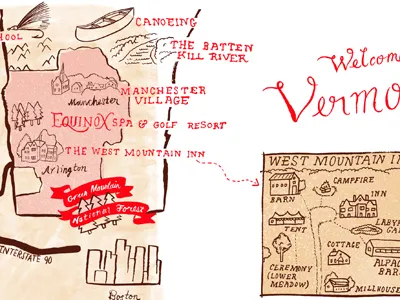 HOOL
CANOEING
THE BATTEN
KILL RIVER
Manchester
MANCHESTER
VILLAGE
EQUINOX SPA & GOLF RESORT
THE WEST MOUNTAIN INN
Arlington
Green Mountain
National Forest
INTERSTATE 90
Boston
Welcome
Vermo
WEST MOUNTAIN IN
BARN
CAMPFIRE
INN
TENT
LABY
GA
COTTAGE
ALPAC
BAR
CEREMONY
(LOWER
MEADOW)
MILLHOUSE